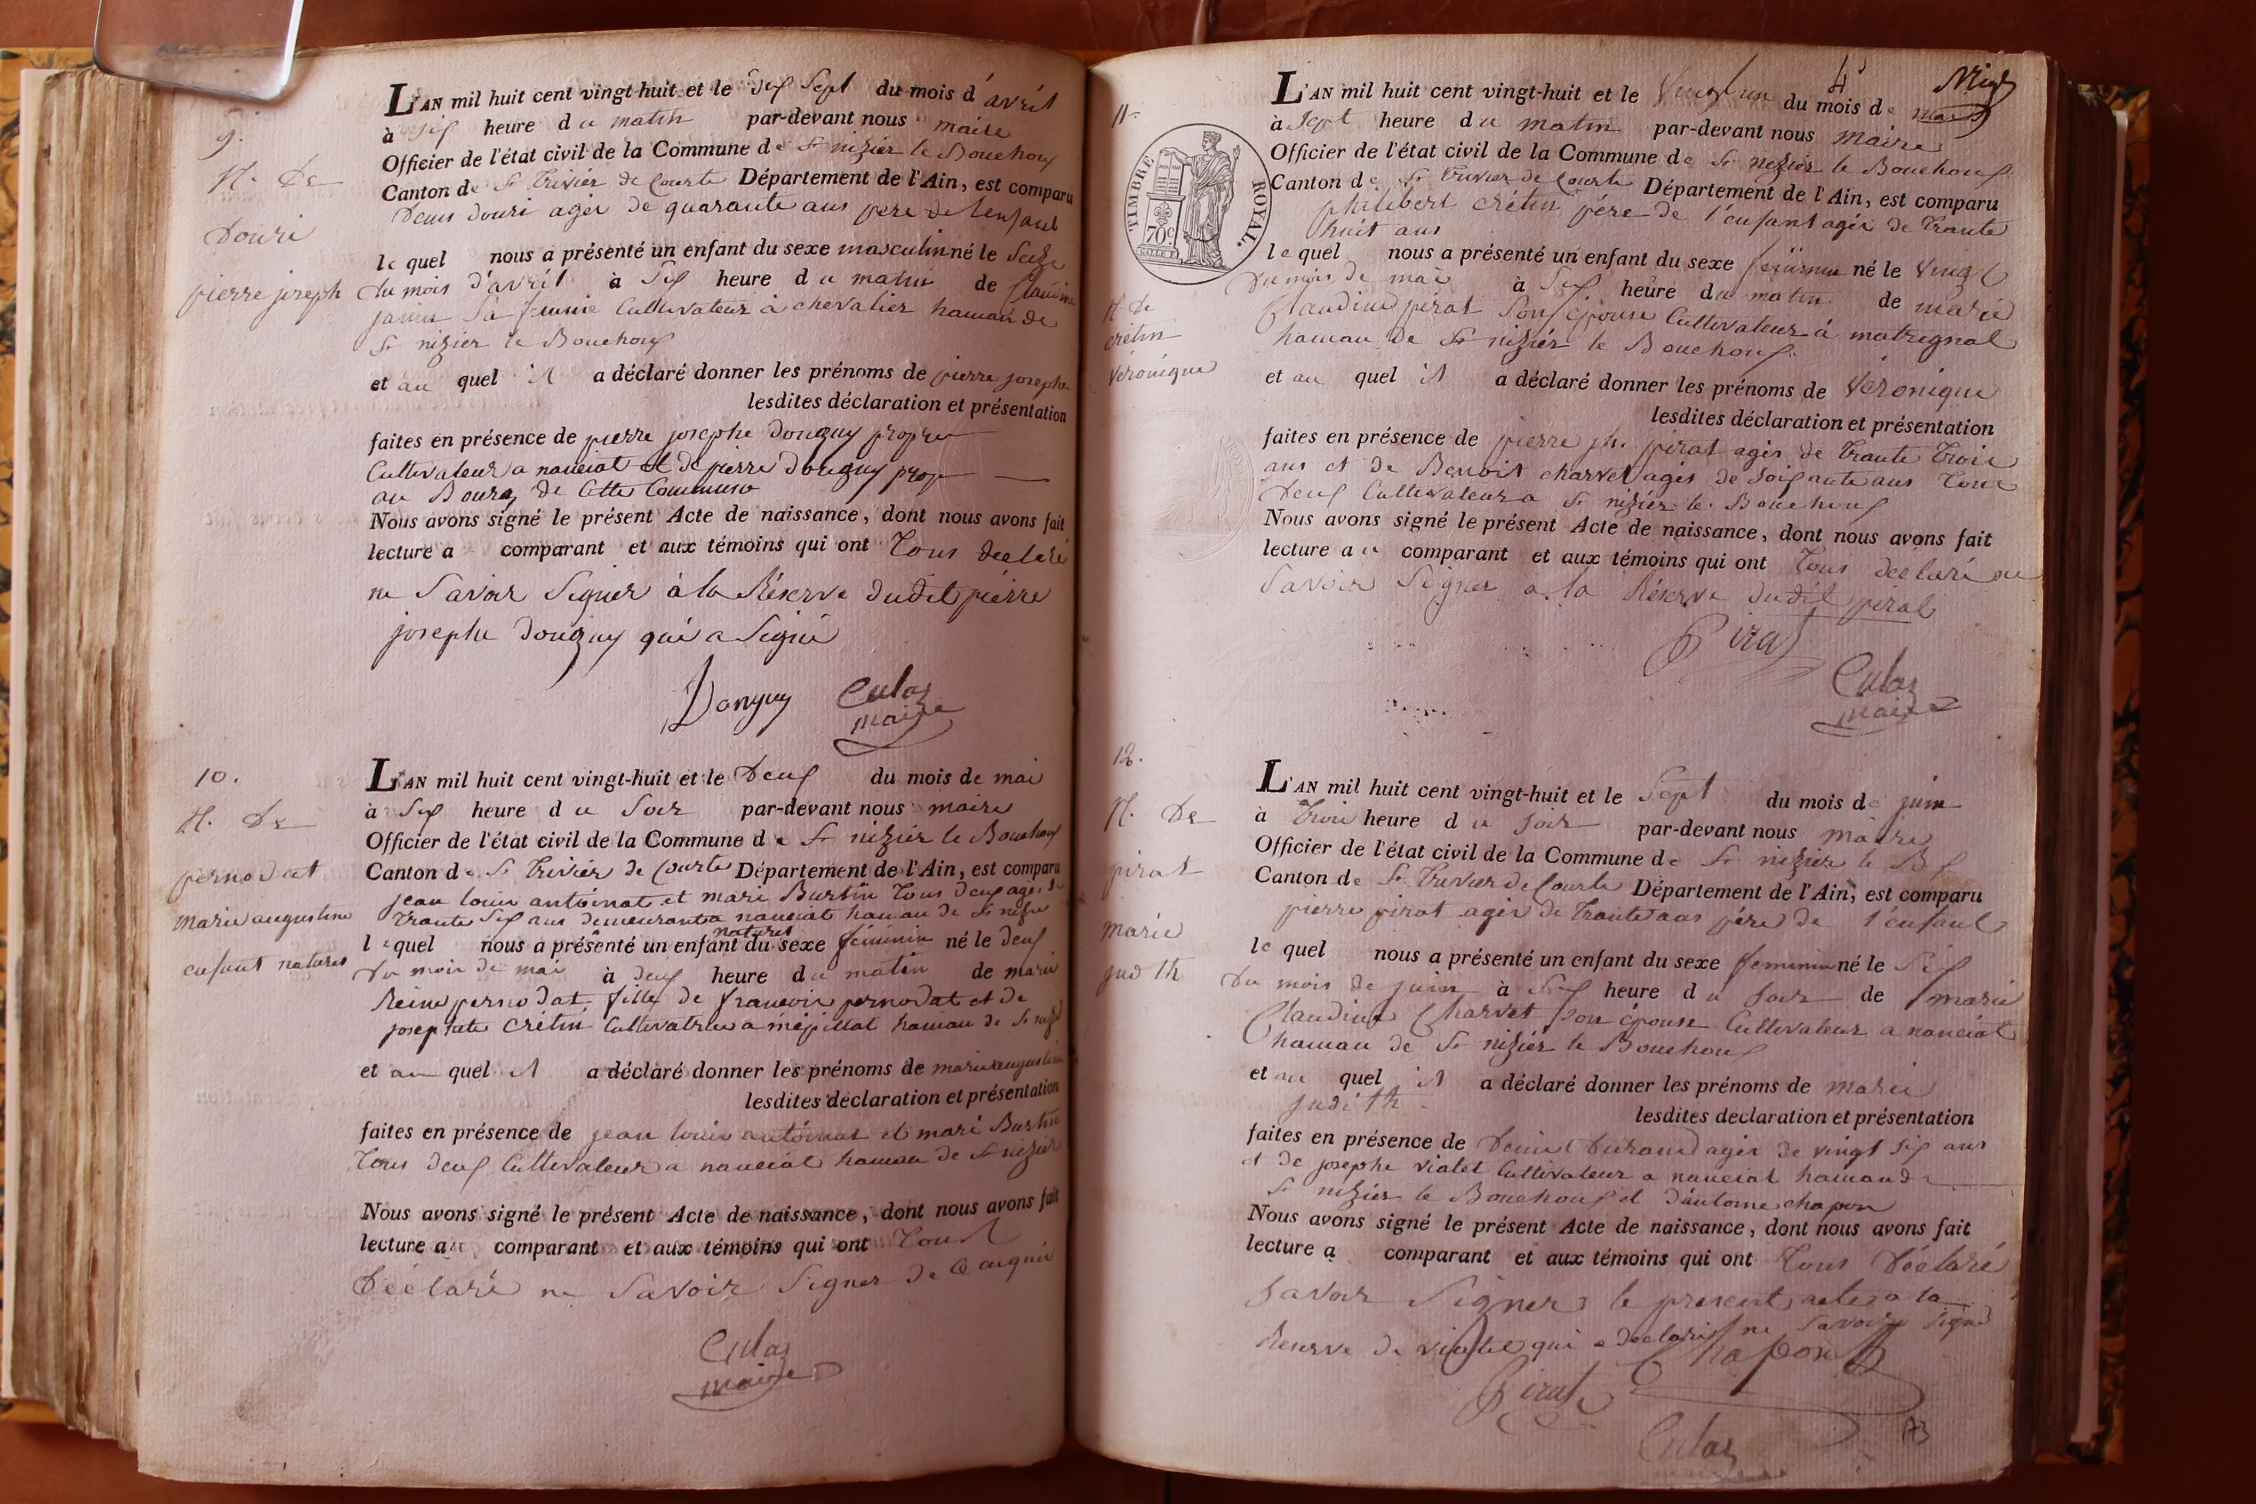 9.
N. De
Douri
pierre joseph
L'AN mil huit cent vingt-huit et le dix Sept du mois d'avril
à six heure du matin par-devant nous maire
Officier de l'état civil de la Commune de St nizier le Bouchoux
Canton de St trivier de Courte Département de l'Ain, est comparu
Denis douri agér de quarante ans pere de lenfant
le quel nous a présenté un enfant du sexe masculin né le Seize
du mois d'avril à Six heure du matin de Claudine
janin Sa femme Cultivateur à chevalier hamau de
St nizier le Bouchoux
et au quel il a déclaré donner les prénoms de pierre josephe
lesdites déclaration et présentation
faites en présence de pierre josephe douguy propre
Cultivateur a nanciat et de pierre douguy prop
au Bourg de Cette Commune
Nous avons signé le présent Acte de naissance, dont nous avons fait
lecture a comparant et aux témoins qui ont Tous déclaré
ne Savoir Signer à la Réserve dudit pierre
josephe douguy qui a Signé
Donguy Culas
maire
10.
N. De
pernodat
marie augustine
enfant naturel
L'AN mil huit cent vingt-huit et le Deux du mois de mai
à Six heure du Soir par-devant nous maire
Officier de l'état civil de la Commune de St nizier le Bouchoux
Canton de St trivier de Courte Département de l'Ain, est comparu
jean louis antoinat et marie Burtin Tous deux agés de
trante Six ans demeurant a nanciat hamau de St nizier
le quel nous a présenté un enfant naturel du sexe féminin né le deux
du mois de mai à deux heure du matin de marie
Reine pernodat fille de francois pernodat et de
josephte Crétin Cultivatrice a mépillat hamau de St nizier
et au quel il a déclaré donner les prénoms de marie augustine
lesdites déclaration et présentation
faites en présence de jean louis antoinat et marie Burtin
Tous deux Cultivateur a nanciat hamau de St nizier
Nous avons signé le présent Acte de naissance, dont nous avons fait
lecture au comparant et aux témoins qui ont Tous
Déclaré ne Savoir Signer de Ce
Culas
maire
11.
N. De
crétin
Véronique
TIMBRE ROYAL.
70c
L'AN mil huit cent vingt-huit et le Vingt un du mois de mai
à Sept heure du matin par-devant nous maire
Officier de l'état civil de la Commune de St nizier le Bouchoux
Canton de St trivier de Courte Département de l'Ain, est comparu
philibert crétin pére de l'enfant agér de trante
huit ans
le quel nous a présenté un enfant du sexe féminin né le Vingt
du mois de mai à Six heure du matin de marie
Claudine pirat Son épouse Cultivateur à matrignat
hamau de St nizier le Bouchoux
et au quel il a déclaré donner les prénoms de Véronique
lesdites déclaration et présentation
faites en présence de pierre jh. pirat agér de trante trois
ans et de Benoit charvet agés de Soixante ans Tous
Deux Cultivateur a St nizier le Bouchoux
Nous avons signé le présent Acte de naissance, dont nous avons fait
lecture au comparant et aux témoins qui ont Tous déclaré ne
Savoir Signer a la Réserve dudit pirat
Pirat
Culas
maire
12.
N. De
pirat
marie
judith
L'AN mil huit cent vingt-huit et le Sept du mois de juin
à Trois heure du Soir par-devant nous maire
Officier de l'état civil de la Commune de St nizier le Bx
Canton de St trivier de Courte Département de l'Ain, est comparu
pierre pirat agér de trante ans pére de l'enfant
le quel nous a présenté un enfant du sexe feminin né le Six
Du mois de juin à Six heure du Soir de marie
Claudine Charvet Son épouse Cultivateur a nanciat
hamau de St nizier le Bouchoux
et au quel il a déclaré donner les prénoms de marie
judith
lesdites declaration et présentation
faites en présence de Denis Durand agér de vingt six ans
et de josephe vialet Cultivateur a nanciat hamau de
St nizier le Bouchoux et d'antoine chapon
Nous avons signé le présent Acte de naissance, dont nous avons fait
lecture a comparant et aux témoins qui ont Tous Déclaré
Savoir Signer le present acte a la
Reserve de vialet qui a declaré ne Savoir Signé
Chapon
Pirat
Culas
73